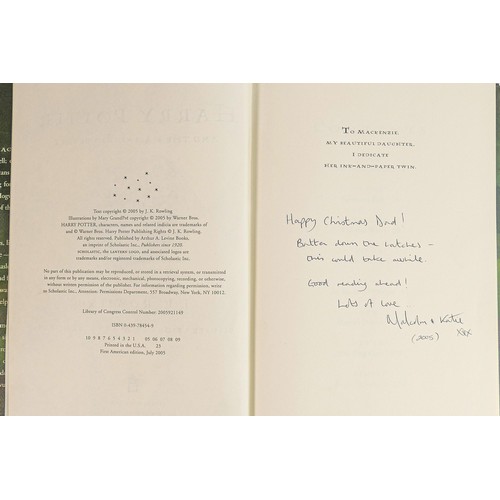 Text copyright © 2005 by J. K. Rowling
Illustrations by Mary GrandPré copyright © 2005 by Warner Bros.
HARRY POTTER, characters, names and related indicia are trademarks of
and © Warner Bros. Harry Potter Publishing Rights © J. K. Rowling.
All rights reserved. Published by Arthur A. Levine Books,
an imprint of Scholastic Inc., Publishers since 1920.
SCHOLASTIC, the LANTERN LOGO, and associated logos are
trademarks and/or registered trademarks of Scholastic Inc.
No part of this publication may be reproduced, or stored in a retrieval system, or transmitted
in any form or by any means, electronic, mechanical, photocopying, recording, or otherwise,
without written permission of the publisher. For information regarding permission, write
to Scholastic Inc., Attention: Permissions Department, 557 Broadway, New York, NY 10012.
Library of Congress Control Number: 2005921149
ISBN 0-439-78454-9
10 9 8 7 6 5 4 3 2 1 05 06 07 08 09
Printed in the U.S.A. 23
First American edition, July 2005
To Mackenzie,
my beautiful daughter,
I dedicate
her ink-and-paper twin.
Happy Christmas Dad!
Batten down the hatches –
this could take awhile.
Good reading ahead!
Lots of Love
Malcolm & Katie
(2005) xxx